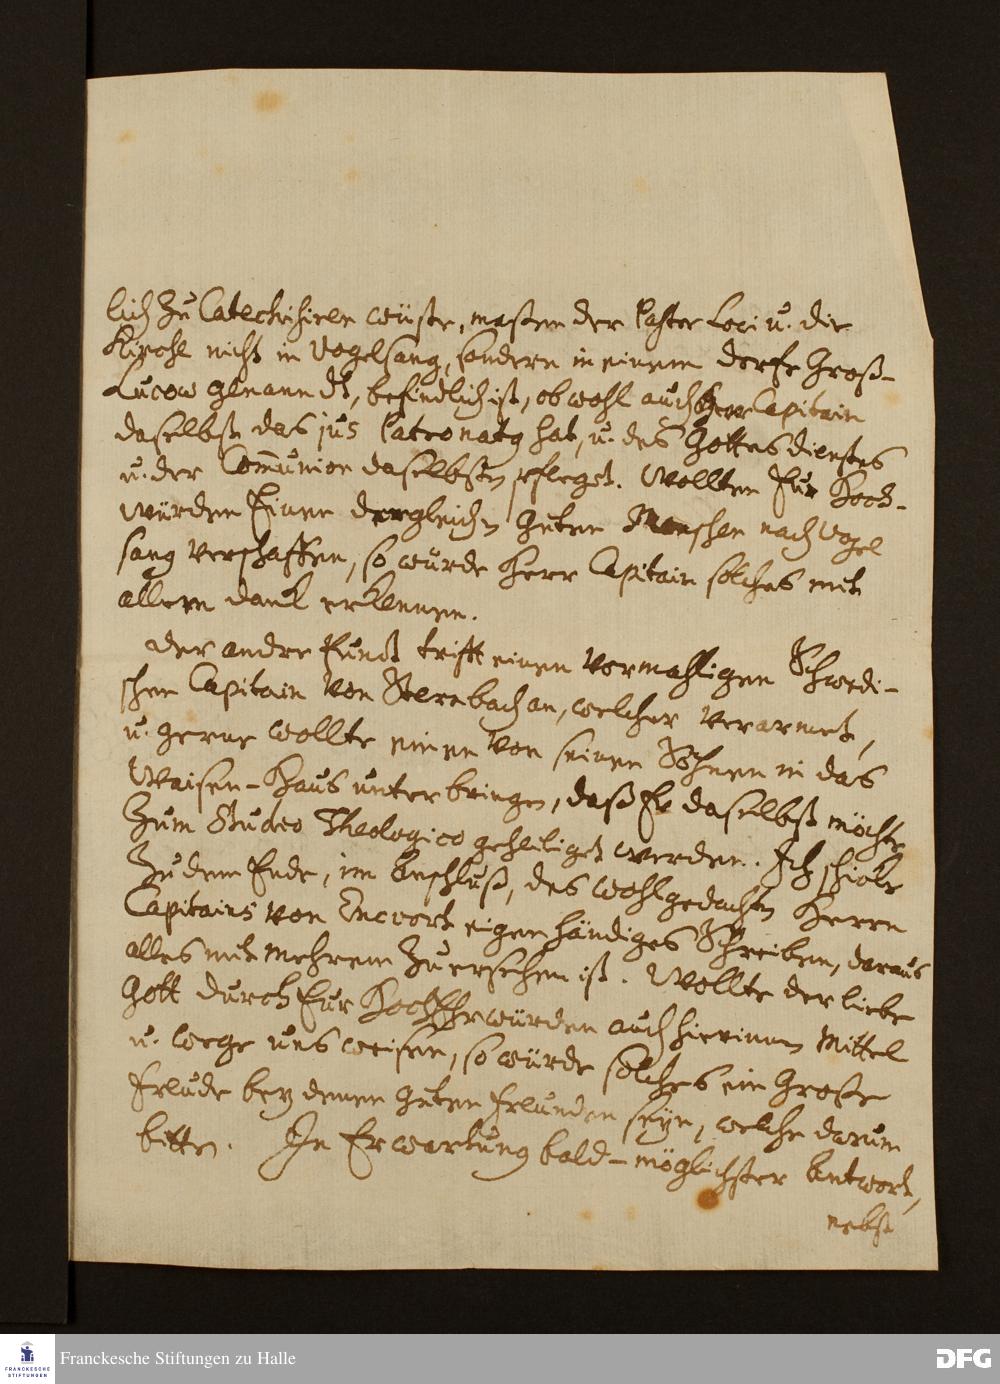 lich zu Catechisiren wüste, maßen der Pastor Loci u. die
Kirche nicht in Vogelsang, sondern in einem dorfe Groß-
Lucow genandt, befindlich ist, obwohl auch Herr Capitain
daselbst das jus Patronatq hat, u. des Gottesdienstes
u. der Communion daselbsten pfleget. Wollten Eur Hoch-
würden Einen dergleichen guten Menschen nach Vogel
sang verschaffen, so würde Herr Capitain solches mit
allem danck erkennen.
Der andre Punct trifft einen vormahligen Schwedi-
schen Capitain von Sternbach an, welcher verarmet,
u. gerne wollte einen von seinen Söhnen in das
Waisen-Haus unterbringen, daß Er daselbst möchte
zum Studio Theologico geheiliget werden. Ich schicke
zu dem Ende, im Anschluß, des wohlgedachten Herrn
Capitains von Encvort eigenhändiges Schreiben, daraus
alles mit mehrem zu ersehen ist. Wollte der liebe
Gott durch Eur HochEhrwürden auch hierinnen Mittel
u. wege uns weisen, so würde solches ein Große
Freude bey denen guten Freunden seyn, welche darum
bitten. In Erwartung bald-möglichster Antwort,
nebst
Franckesche Stiftungen zu Halle
FRANCKESCHE
STIFTUNGEN
DFG